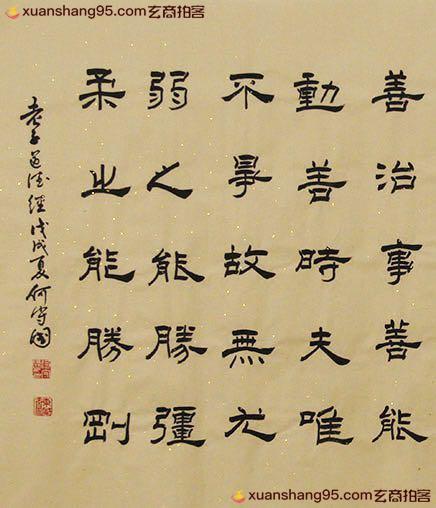 xuanshang95.com玄商拍客
善治事善能
動善時夫唯
不爭故無尤
弱之能勝彊
柔之能勝剛
老子道德經戊戌夏何守國
xuanshang95.com玄商拍客